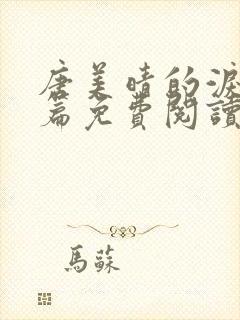 唐美晴的淚
篇免費閱讀
馬蘇